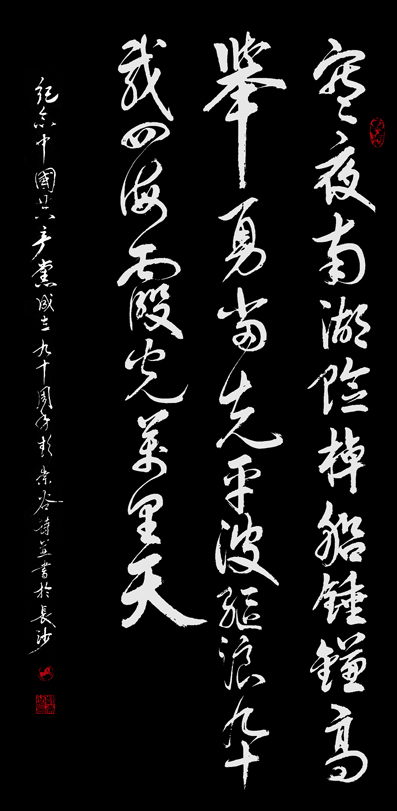 寒夜南湖險棹船錘鎌高
舉勇當先平波驅浪九十
載四海霞光萬里天
紀念中國共産黨成立九十周年彭崇谷詩並書於長沙